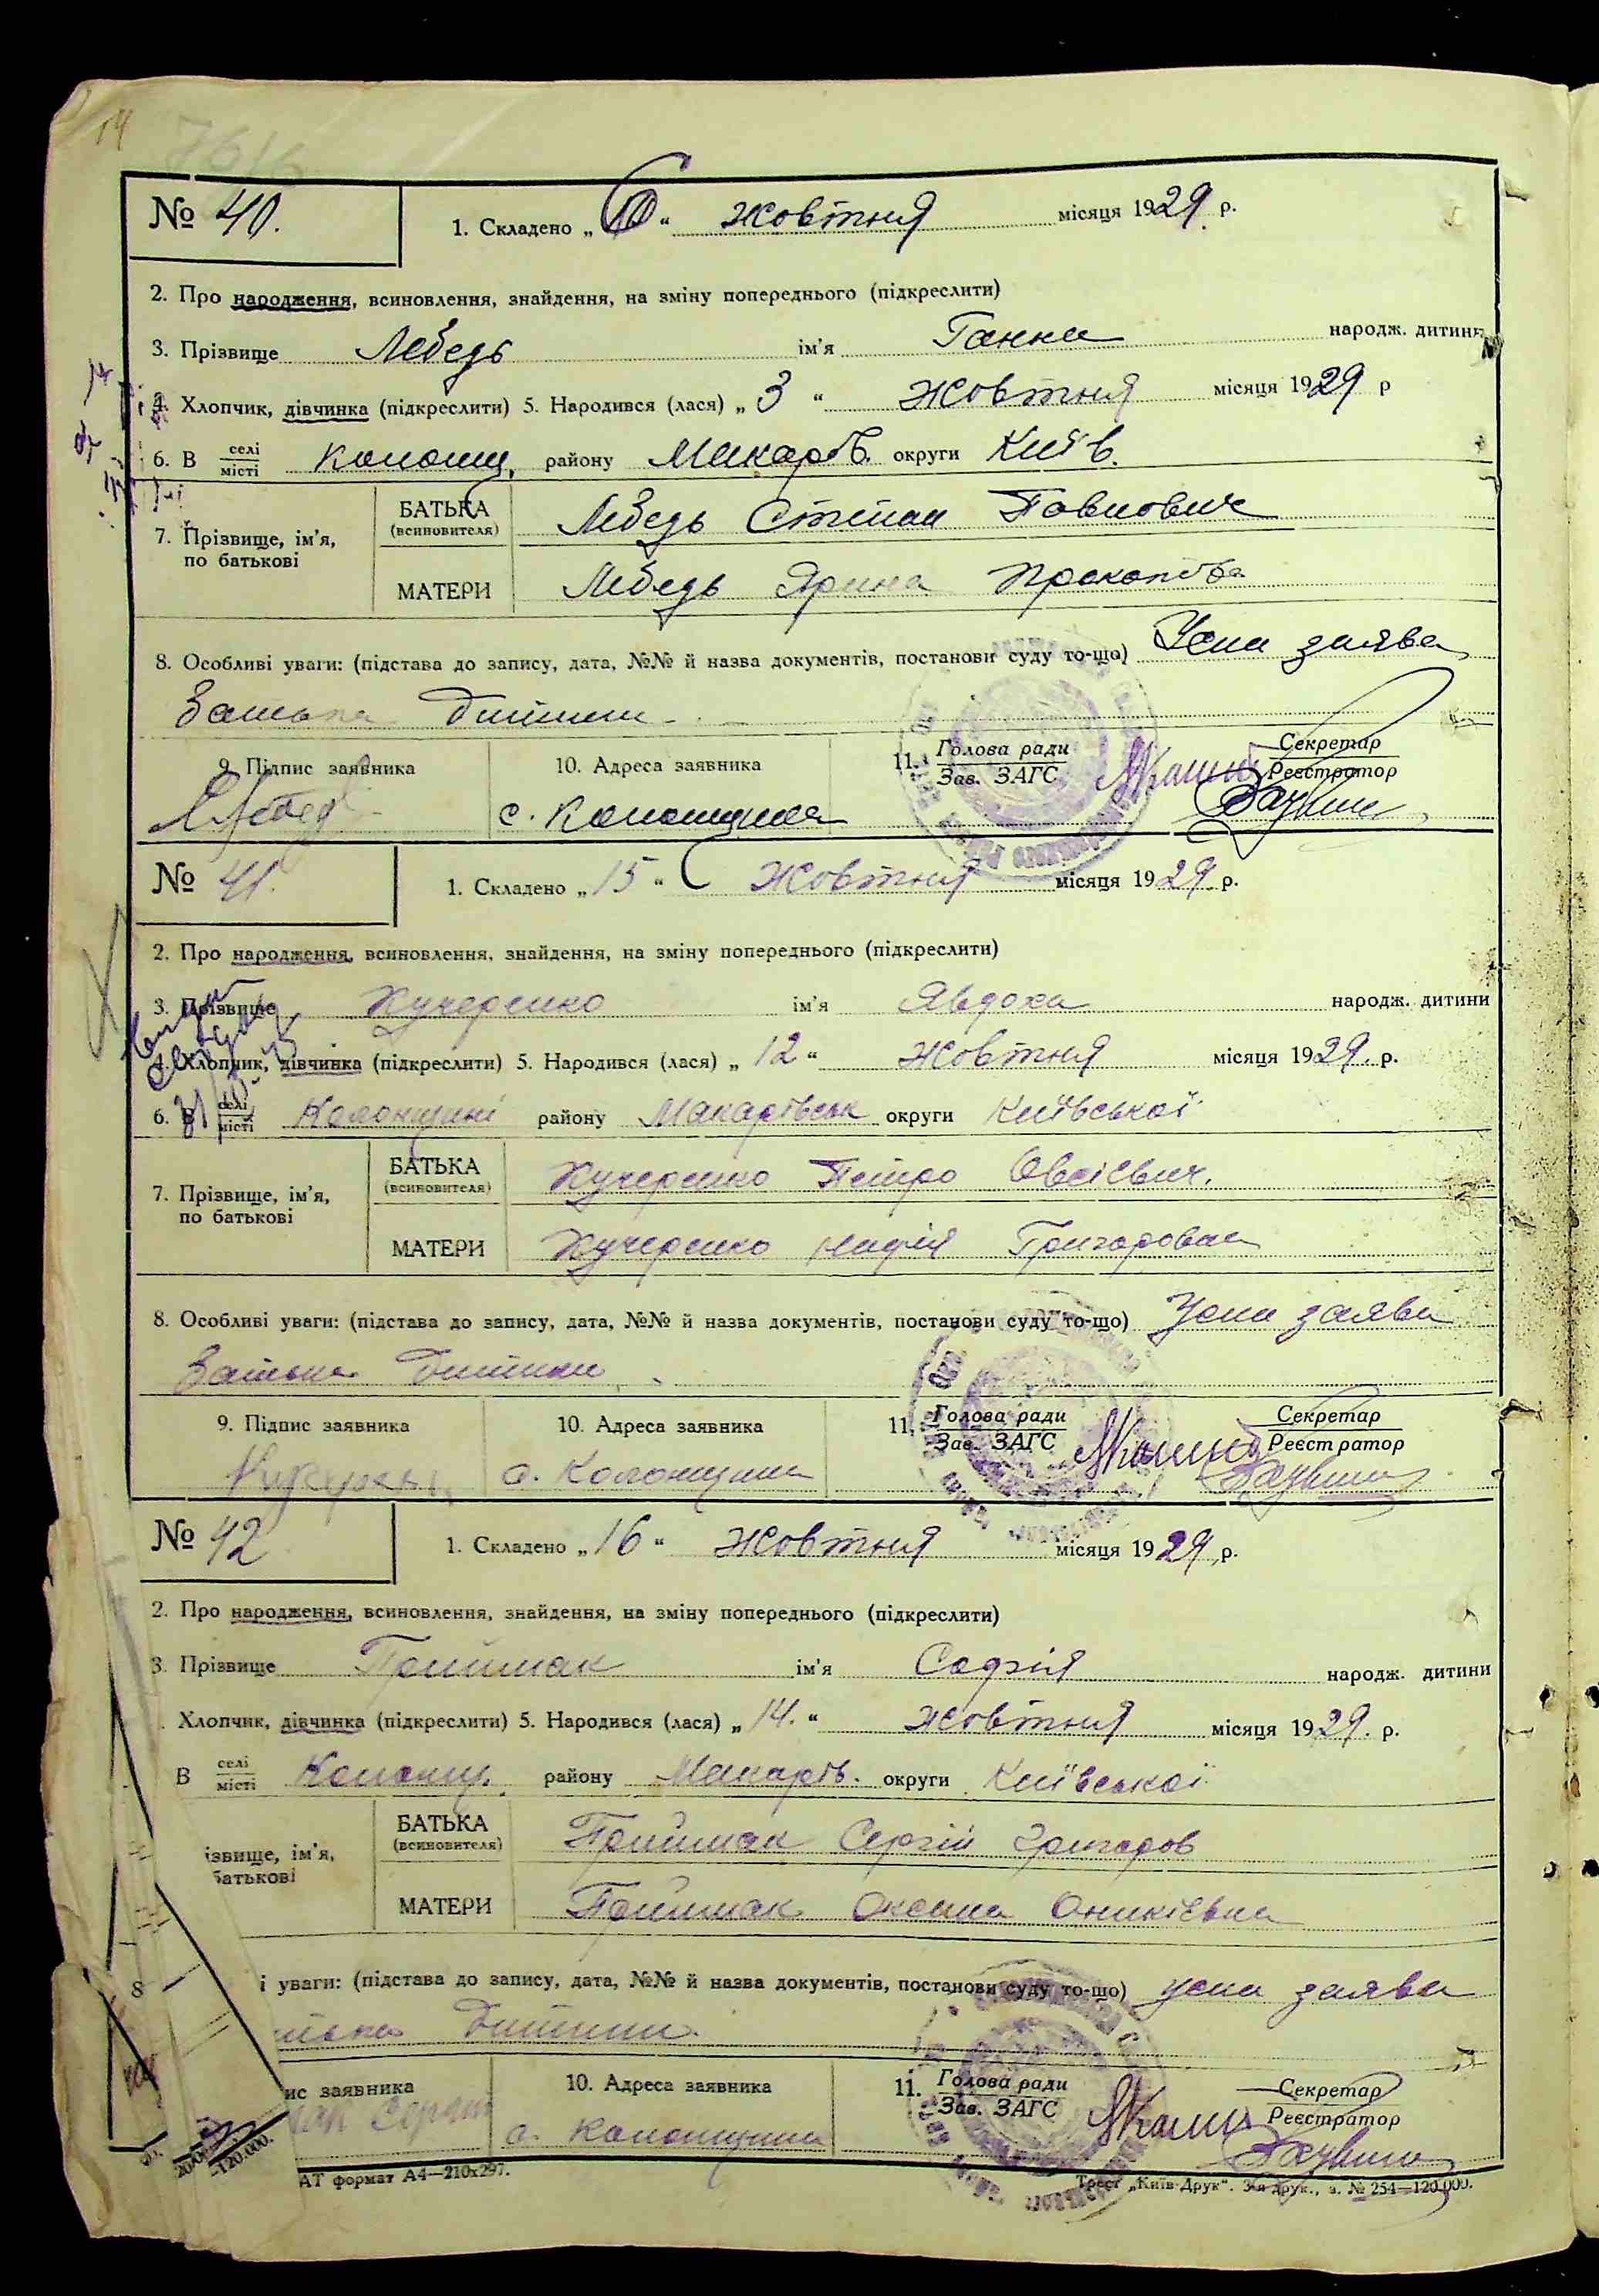 14
№ 40.
1. Складено „10“ жовтня місяця 1929 р.
2. Про народження, всиновлення, знайдення, на зміну попереднього (підкреслити)
3. Прізвище Лебедь ім'я Ганна народж. дитини
4. Хлопчик, дівчинка (підкреслити) 5. Народився (лася) „3“ жовтня місяця 1929 р
6. В селі/місті Колонщ. району Макарів. округи Київ.
БАТЬКА (всиновителя) Лебедь Степан Павлович
7. Прізвище, ім'я, по батькові
МАТЕРИ Лебедь Ярина Прокопівна
8. Особливі уваги: (підстава до запису, дата, №№ й назва документів, постанови суду то-що) Усна заява
Батька дитини
9. Підпис заявника 10. Адреса заявника 11. Голова ради/Зав. ЗАГС Секретар/Реєстратор
с. Колонщина
№ 41.
1. Складено „15“ жовтня місяця 1929 р.
2. Про народження, всиновлення, знайдення, на зміну попереднього (підкреслити)
3. Прізвище Кучеренко ім'я Явдоха народж. дитини
4. Хлопчик, дівчинка (підкреслити) 5. Народився (лася) „12“ жовтня місяця 1929. р.
6. В селі/місті Колонщині району Макарівськ округи Київської
БАТЬКА (всиновителя) Кучеренко Петро Овсієвич.
7. Прізвище, ім'я, по батькові
МАТЕРИ Кучеренко Надія Григоровна
8. Особливі уваги: (підстава до запису, дата, №№ й назва документів, постанови суду то-що) Усна заява
Батька дитини
9. Підпис заявника 10. Адреса заявника 11. Голова ради/Зав. ЗАГС Секретар/Реєстратор
с. Колонщина
№ 42
1. Складено „16“ жовтня місяця 1929 р.
2. Про народження, всиновлення, знайдення, на зміну попереднього (підкреслити)
3. Прізвище Приймак ім'я Софія народж. дитини
Хлопчик, дівчинка (підкреслити) 5. Народився (лася) „14.“ жовтня місяця 1929. р.
В селі/місті Колонщ. району Макарів. округи Київської
БАТЬКА (всиновителя) Приймак Сергій Григоров
ізвище, ім'я, батькові
МАТЕРИ Приймак Оксана Оникієвна
8 і уваги: (підстава до запису, дата, №№ й назва документів, постанови суду то-що) усна заява
дитини.
ис заявника 10. Адреса заявника 11. Голова ради/Зав. ЗАГС Секретар/Реєстратор
с. Колонщина
АТ формат А4—210х297. Трест „Київ-Друк“. 3-я друк., з. № 254—120.000.